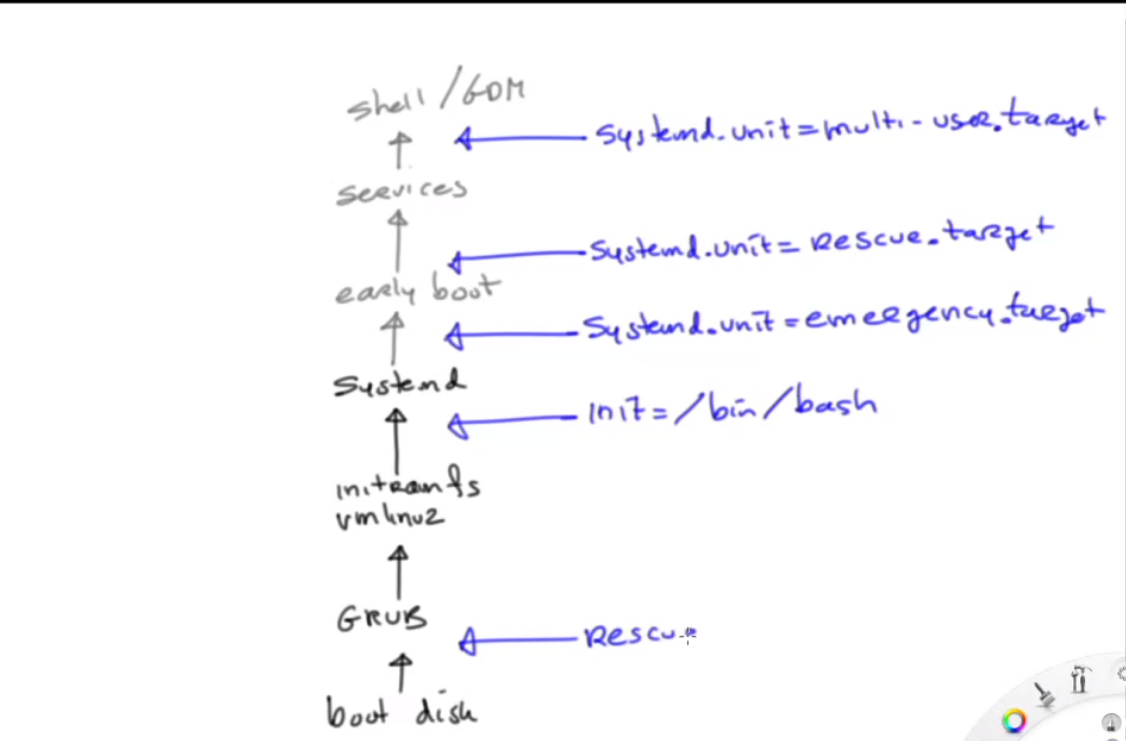 shell/GDM
systemd.unit=multi-user.target
services
systemd.unit=rescue.target
early boot
systemd.unit=emergency.target
systemd
init=/bin/bash
initramfs
vmlinuz
GRUB
Rescue
boot disk